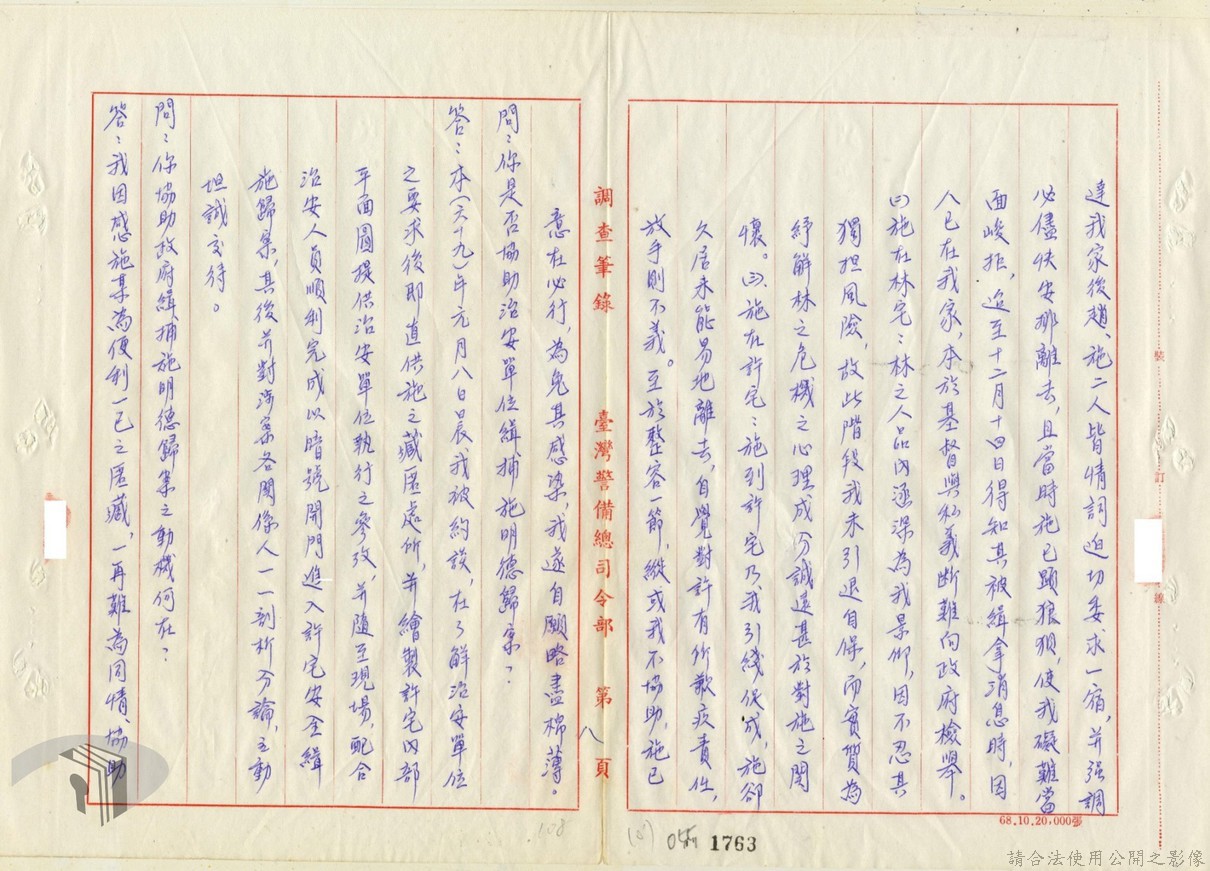 達我家後趙、施二人皆情詞迫切委求一宿，并强調
必儘快安排離去，且當時施已顯狼狽，使我礙難當
面峻拒，迨至十二月十四日得知其被緝拿消息時，因
人已在我家，本於基督與私義斷難向政府檢舉。
㈡施在林宅：林之人品內涵深為我景仰，因不忍其
獨担風險，故此階段我未引退自保，而實質為
紓解林之危機之心理成分誠遠甚於對施之關
懷。㈢施在許宅：施到許宅乃我引綫促成，施卻
久居未能易地離去，自覺對許有所歉疚責任，
放手則不義。至於整容一節，縱或我不協助，施已
調查筆錄 臺灣警備總司令部 第八頁
意在必行，為免其感染，我遂自願略盡棉薄。
問：你是否協助治安單位緝捕施明德歸案？
答：本（六十九）年元月八日晨，我被約談，在了解治安單位
之要求後即直供施之藏匿處所，并繪製許宅內部
平面圖提供治安單位執行之參攷，并隨至現場，配合
治安人員順利完成以暗號開門進入許宅安全緝
施歸案，其後并對涉案各關係人一一剖析分論，主動
坦誠交待。
問：你協助政府緝捕施明德歸案之動機何在？
答：我因感施某為便利一己之匿藏，一再難為同情、協助
68.10.20,000張
裝
訂
線
1763
108
請合法使用公開之影像